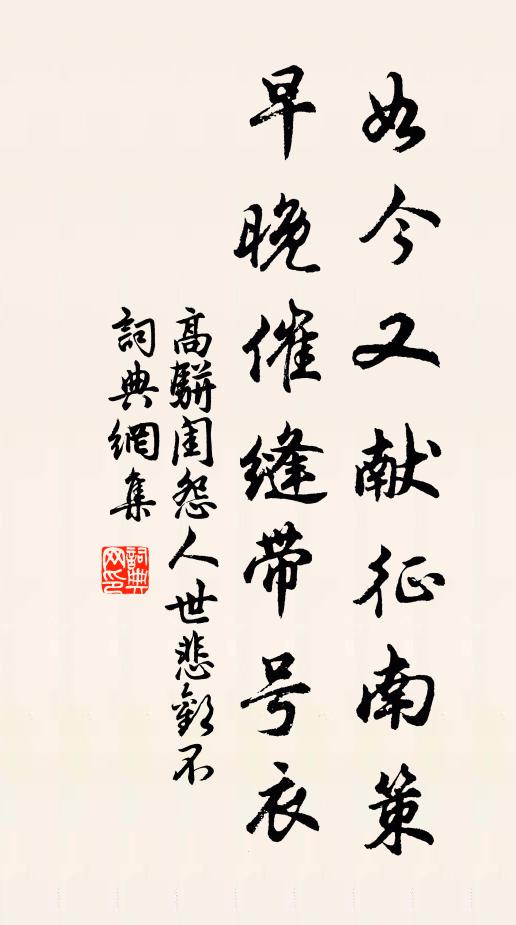 如今又献征南策
早晚催缝带号衣
高駢閨怨人世悲歡不
詞典網集
詞典网印